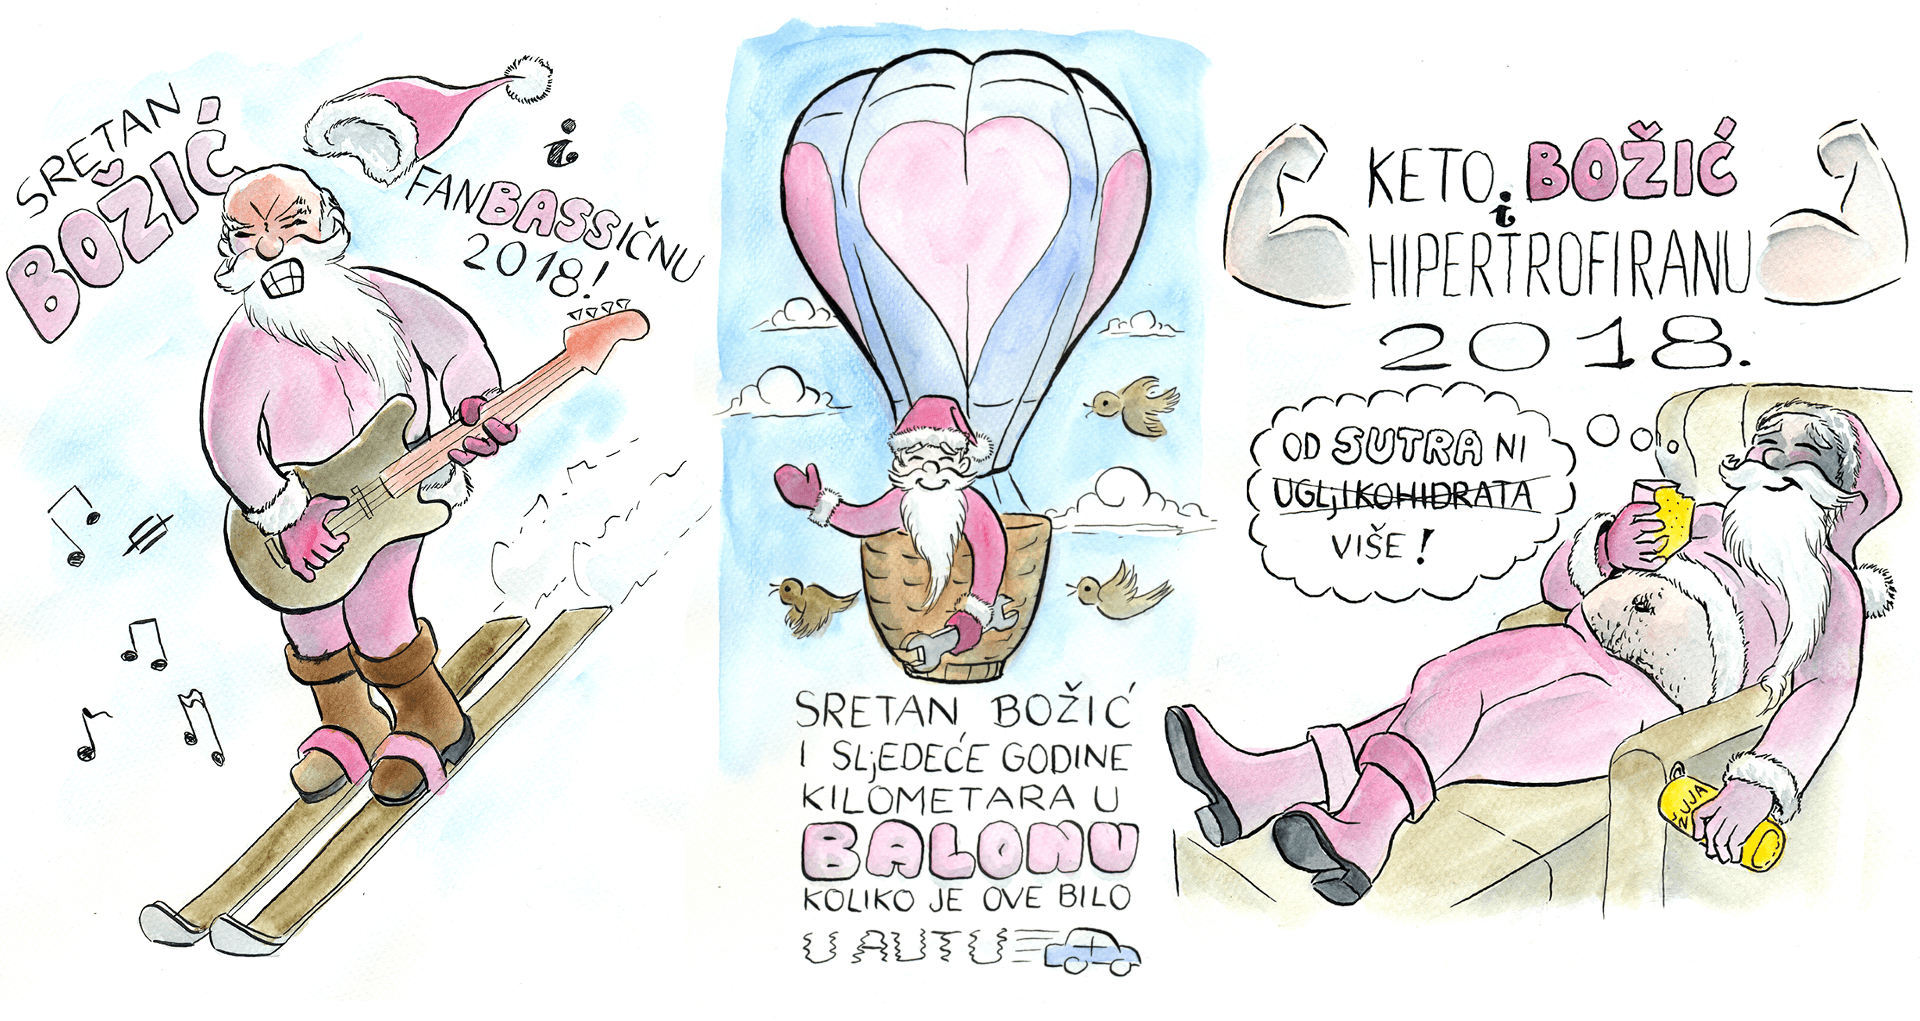 SRETAN
BOŽIĆ
i
FANBASSIČNU
2018.!
SRETAN BOŽIĆ
I SLJEDEĆE GODINE
KILOMETARA U
BALONU
KOLIKO JE OVE BILO
U AUTU
KETO BOŽIĆ
i
HIPERTROFIRANU
2018.
OD SUTRA NI
UGLJIKOHIDRATA
VIŠE!
ŽUJA